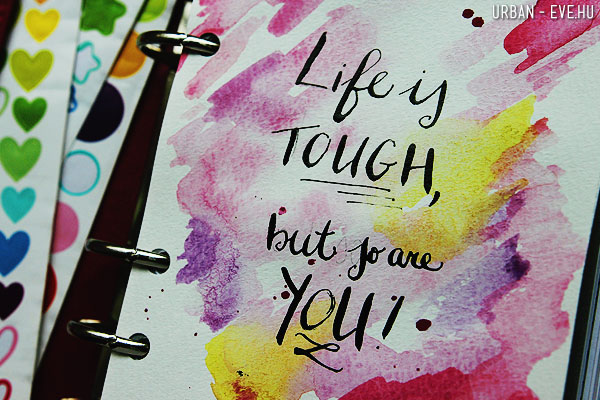 URBAN - EVE.HU
Life is
TOUGH,
but so are
YOU!